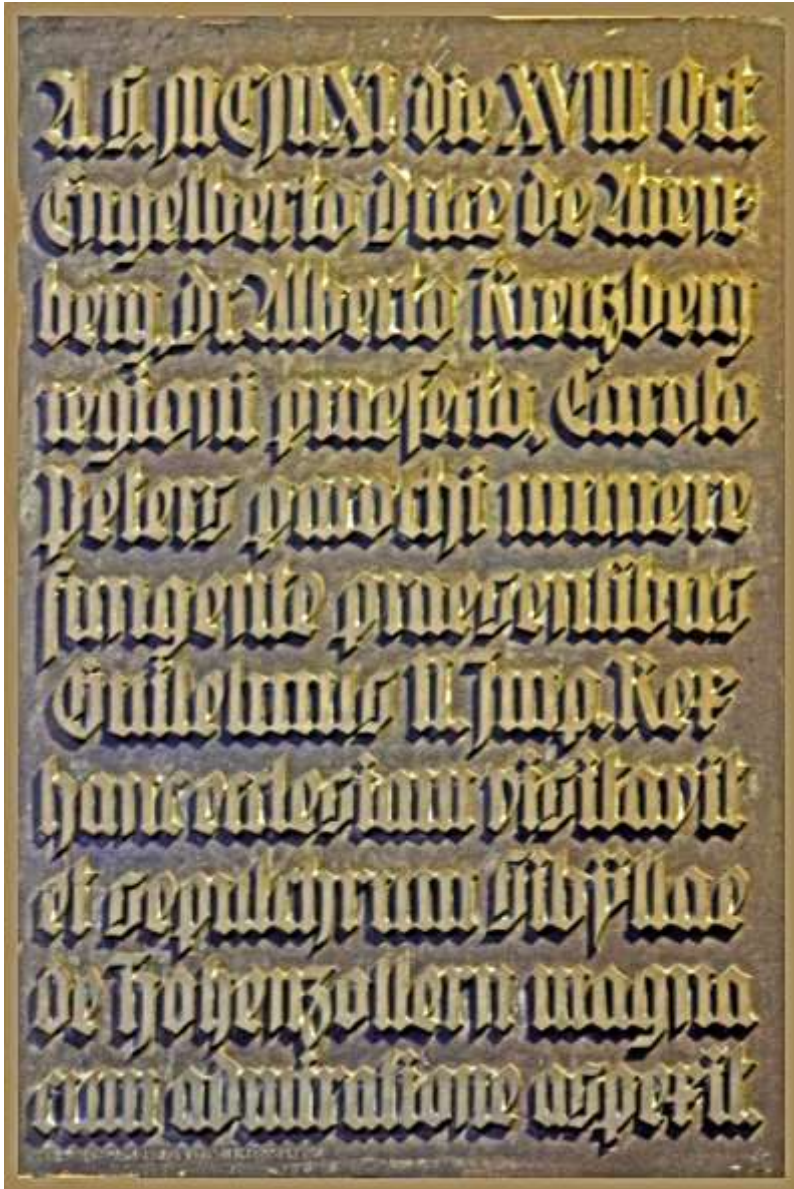 A.S. MCMXI die XVIII Oct.
Engelberto Duce de Aren-
berg, Dr. Alberto Kreuzberg
regioni praefecto, Carolo
Peters parochi munere
fungente praesentibus
Guilelmus II. Imp. Rex
hanc ecclesiam visitavit
et sepulchrum Sibÿllae
de Hohenzollern magna
cum admiratione aspexit.